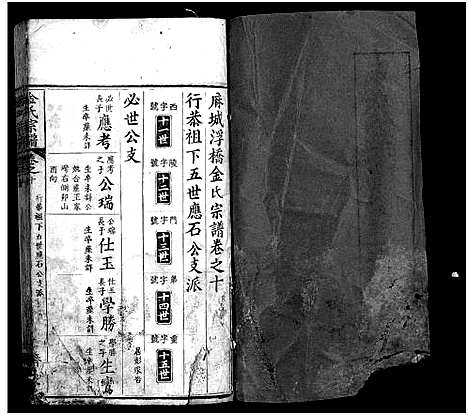 麻城浮橋金氏宗譜卷之十
行恭祖下五世應石公支派
西字號 十一世
陵字號 十二世
門字號 十三世
弟字號 十四世
重字號 十五世
必世公支
居彭家谷
必世長子 應考 生卒葬未詳
應考之子 公瑞 生卒未詳公
西向
公瑞長子 仕玉 生卒葬未詳
仕玉長子 學勝 生卒葬未詳
學勝之子 生鸞 生卒葬未詳
金氏宗譜 卷之十
行恭祖下五世應石公支派